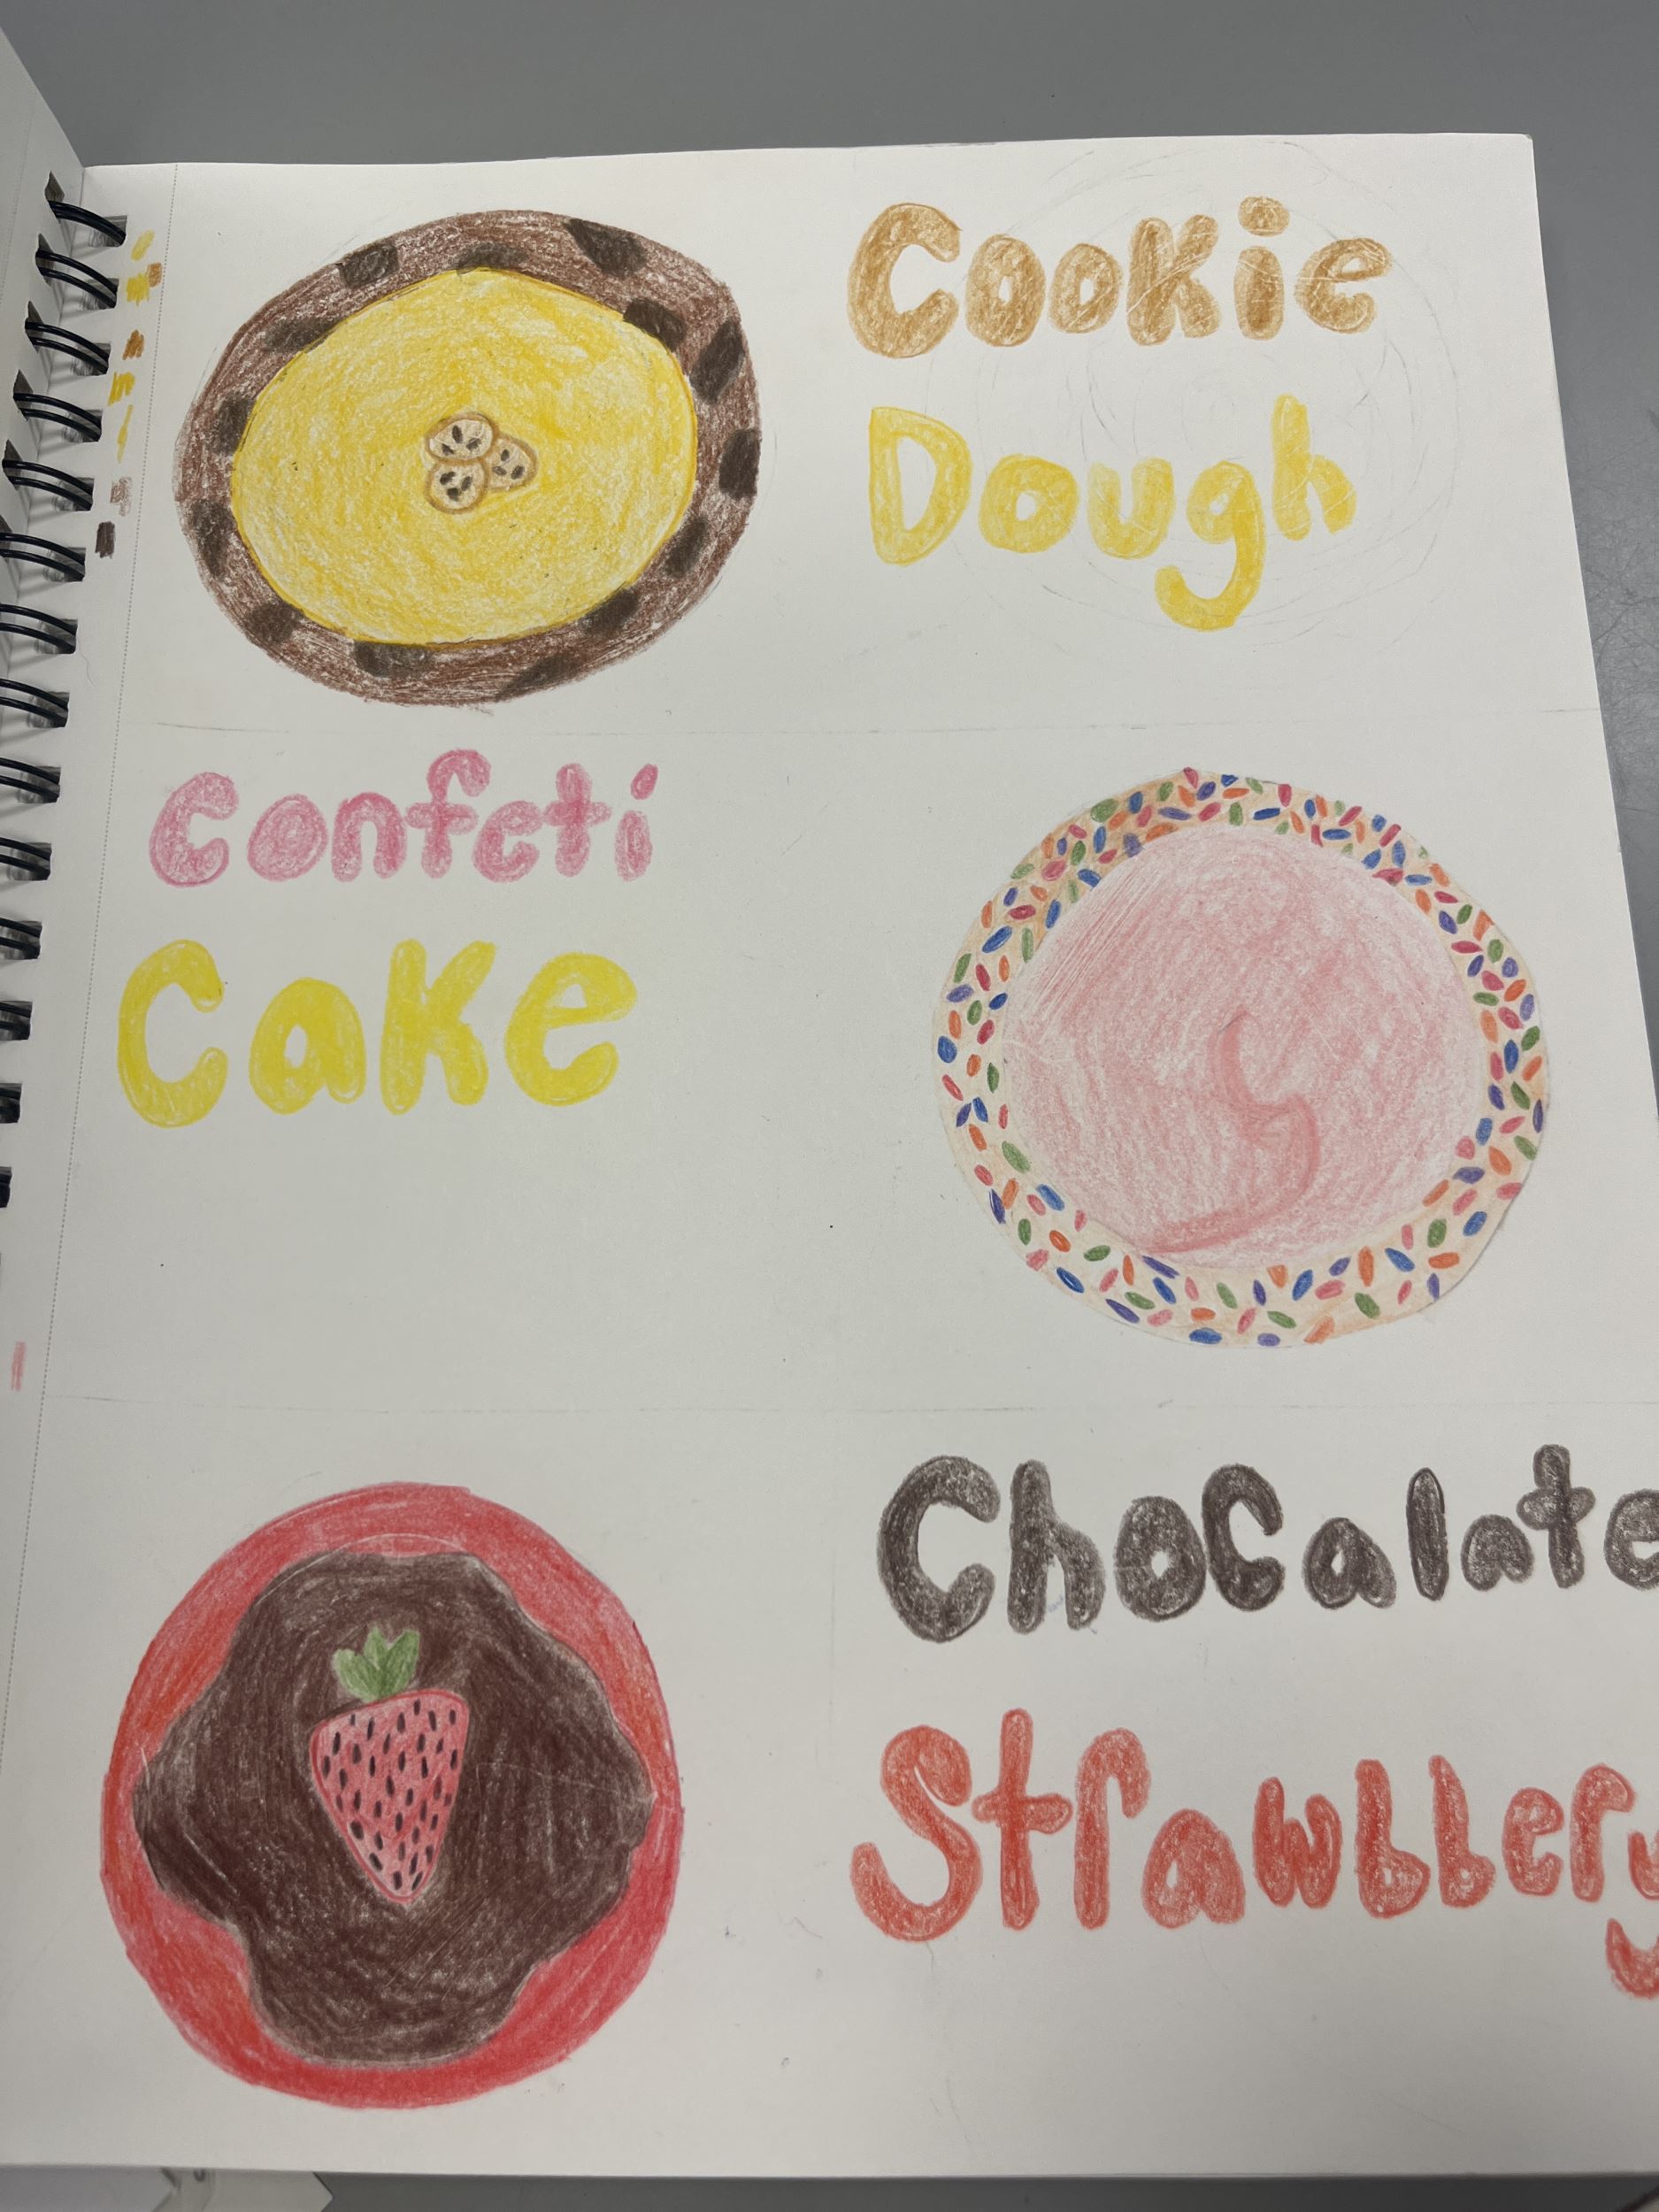 Cookie
Dough
Confeti
Cake
Chocalate
Strawbbery